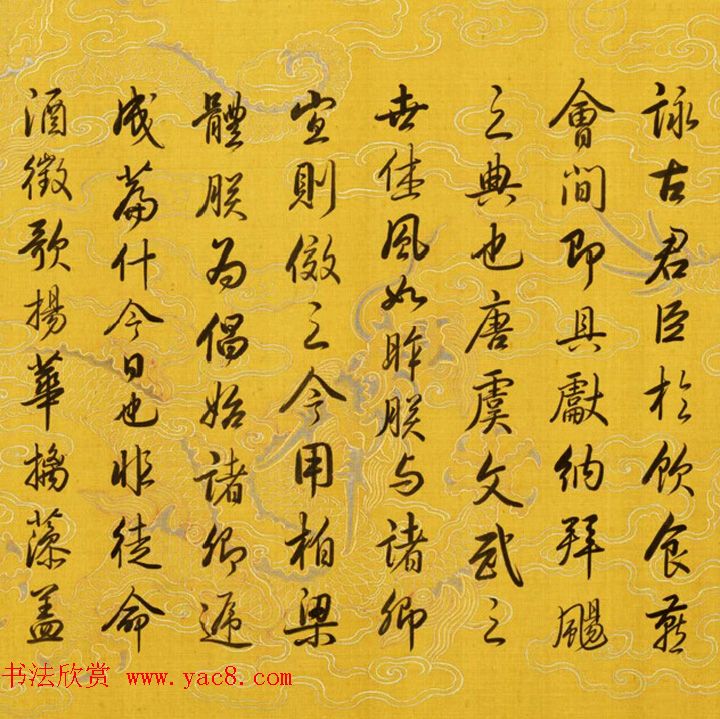 詠古君臣於飲食燕
會間即具獻納拜颺
之典也唐虞文武之
世佳風如眸朕与諸卿
宜則倣之今用柏梁
體朕為倡始諸卿遞
成篇什今日也非徒命
酒徵歌揚華摛藻盖
书法欣赏 www.yac8.com